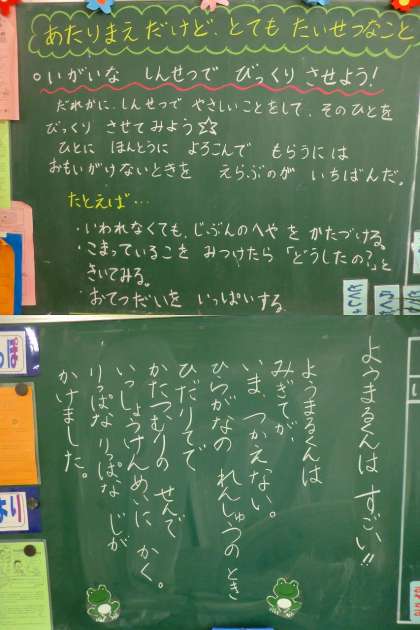 あたりまえ だけど、とても たいせつなこと
○いがいな しんせつで びっくり させよう!
だれかに、しんせつで やさしいことをして、そのひとを
びっくり させてみよう☆☆
ひとに ほんとうに よろこんで もらうには
おもいがけないときを えらぶのが いちばんだ。
たとえば…
・いわれなくても、じぶんのへや を かたづける。
・こまっているこを みつけたら「どうしたの?」と
きいてみる。
・おてつだいを いっぱいする。
ようまるくんは すごい!!
ようまるくんは
みぎてが
いま、つかえない。
ひらがなの れんしゅうのとき
ひだりてで
かたつむりの せんで
いっしょうけんめいに かく。
りっぱな りっぱな じが
かけました。